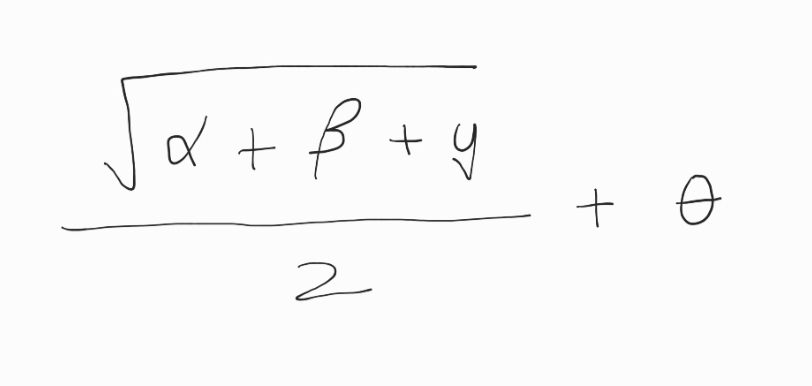 \frac{\sqrt{\alpha + \beta + y}}{2} + \theta